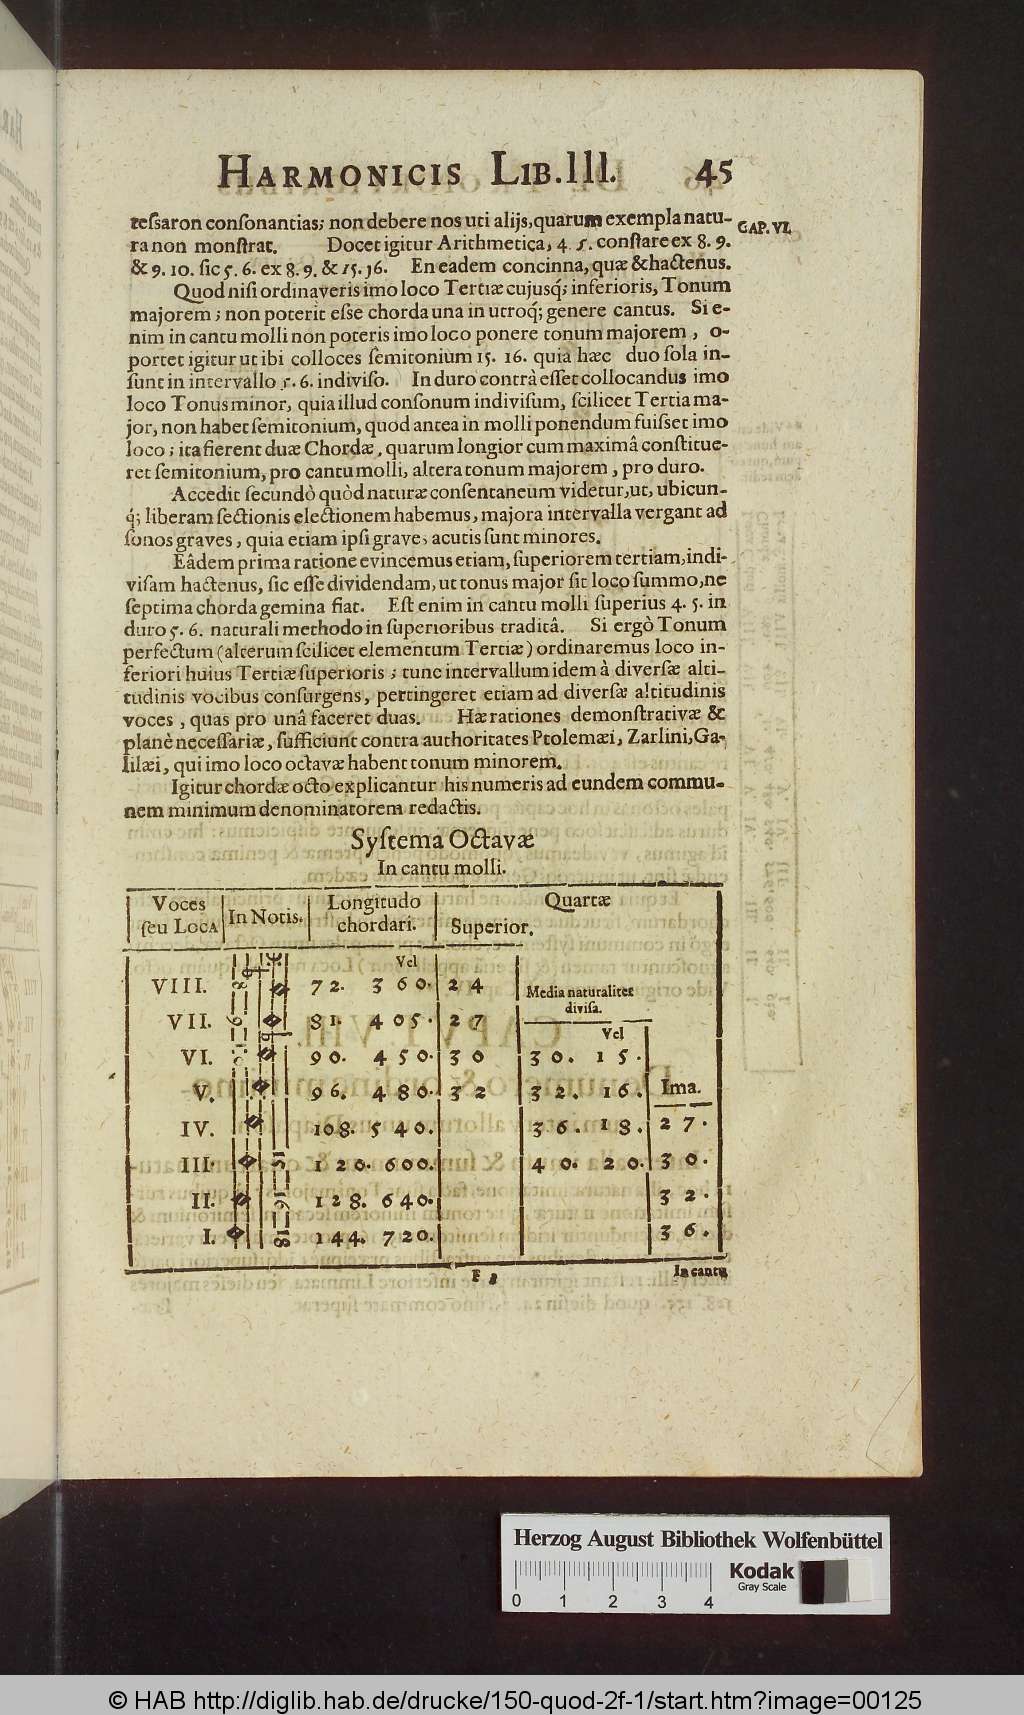 HARMONICIS LIB. III. 45
CAP. VI.
tessaron consonantias; non debere nos uti alijs, quarum exempla natu-
ra non monstrat. Docet igitur Arithmetica, 4. 5. constare ex 8. 9.
& 9. 10. sic 5. 6. ex 8. 9. & 15. 16. En eadem concinna, quæ & hactenus.
Quod nisi ordinaveris imo loco Tertiæ cujusq́; inferioris, Tonum
majorem; non poterit esse chorda una in utroq́; genere cantus. Si e-
nim in cantu molli non poteris imo loco ponere tonum majorem, o-
portet igitur ut ibi colloces semitonium 15. 16. quia hæc duo sola in-
sunt in intervallo 5. 6. indiviso. In duro contrà esset collocandus imo
loco Tonus minor, quia illud consonum indivisum, scilicet Tertia ma-
jor, non habet semitonium, quod antea in molli ponendum fuisset imo
loco; ita fierent duæ Chordæ, quarum longior cum maximâ constitue-
ret semitonium, pro cantu molli, altera tonum majorem, pro duro.
Accedit secundò quòd naturæ consentaneum videtur, ut, ubicun-
q́; liberam sectionis electionem habemus, majora intervalla vergant ad
sonos graves, quia etiam ipsi graves, acutis sunt minores.
Eâdem prima ratione evincemus etiam, superiorem tertiam, indi-
visam hactenus, sic esse dividendam, ut tonus major sit loco summo, ne
septima chorda gemina fiat. Est enim in cantu molli superius 4. 5. in
duro 5. 6. naturali methodo in superioribus traditâ. Si ergò Tonum
perfectum (alterum scilicet elementum Tertiæ) ordinaremus loco in-
feriori huius Tertiæ superioris; tunc intervallum idem à diversæ alti-
tudinis vocibus consurgens, pertingeret etiam ad diversæ altitudinis
voces, quas pro unâ faceret duas. Hæ rationes demonstrativæ &
planè necessariæ, sufficiunt contra authoritates Ptolemæi, Zarlini, Ga-
lilæi, qui imo loco octavæ habent tonum minorem.
Igitur chordæ octo explicantur his numeris ad eundem commu-
nem minimum denominatorem redactis.
Systema Octavæ
In cantu molli.
Voces seu Loca In Notis. Longitudo chordari. Quartæ
Superior.
Vel
VIII. 72. 360. 24 Media naturaliter divisa.
VII. 81. 405. 27 Vel
VI. 90. 450. 30 30. 15.
V. 96. 480. 32 32. 16. Ima.
IV. 108. 540. 36. 18. 27.
III. 120. 600. 40. 20. 30.
II. 128. 640. 32.
I. 144. 720. 36.
8 9 10
15 16 18
F 2 In cantu
Herzog August Bibliothek Wolfenbüttel
Kodak
Gray Scale
0 1 2 3 4
© HAB http://diglib.hab.de/drucke/150-quod-2f-1/start.htm?image=00125